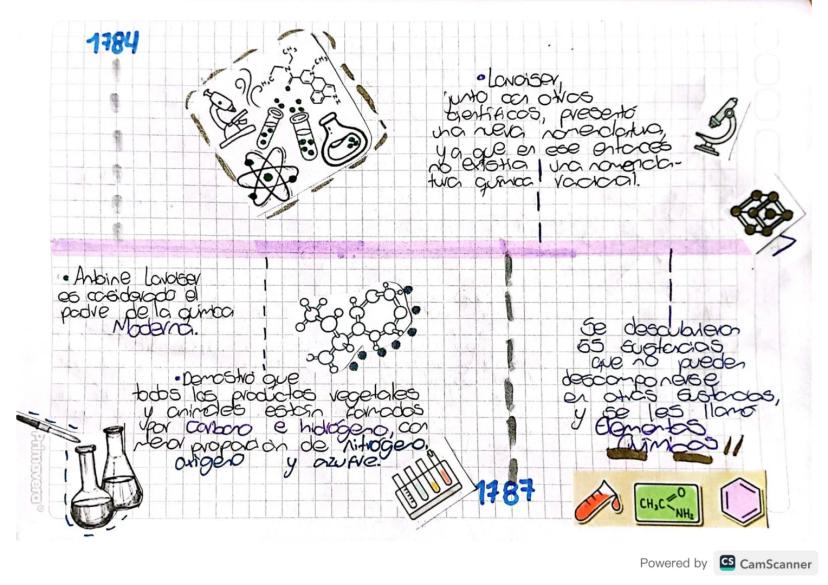 1784
• Lavoiser,
junto con otros
científicos, presentó
una nueva nomenclatura,
ya que en ese entonces
no existía una nomencla-
tura química racional.
• Antoine Lavoiser
es considerado el
padre de la química
Moderna.
• Demostró que
todos los productos vegetales
y animales están formados
por carbono e hidrógeno, con
menor proporción de nitrógeno,
oxígeno y azufre.
1787
Se descubrieron
55 sustancias
que no pueden
descomponerse
en otras sustancias,
y se les llamó
Elementos
Químicos
CH₃C O NH₂
Primavera
Powered by CS CamScanner